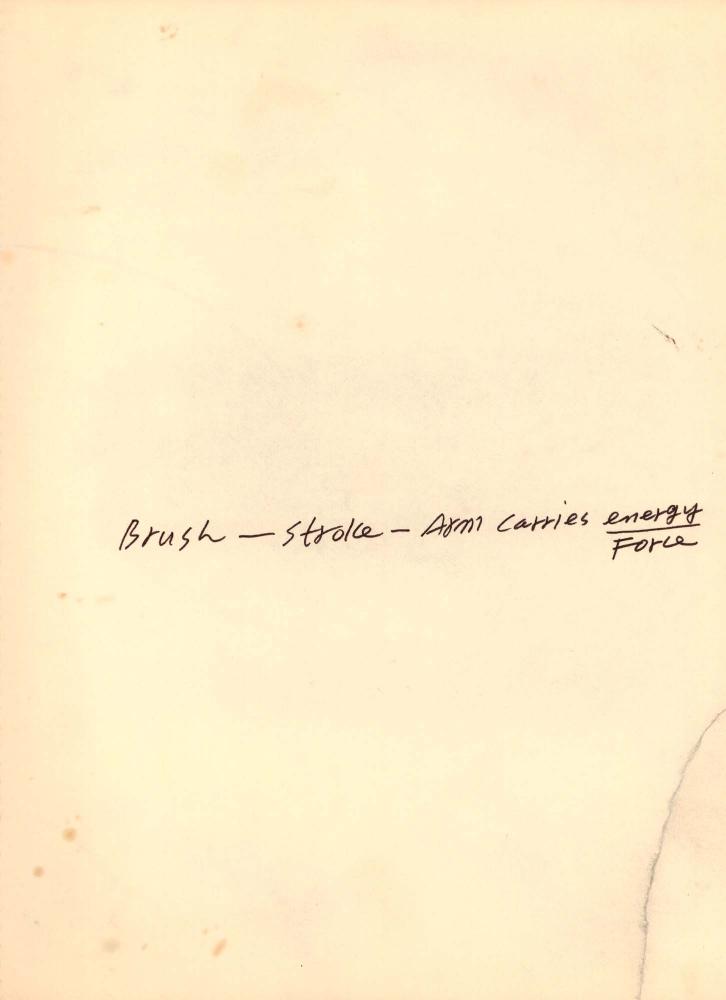 Brush — Stroke — Arm carries energy
Force